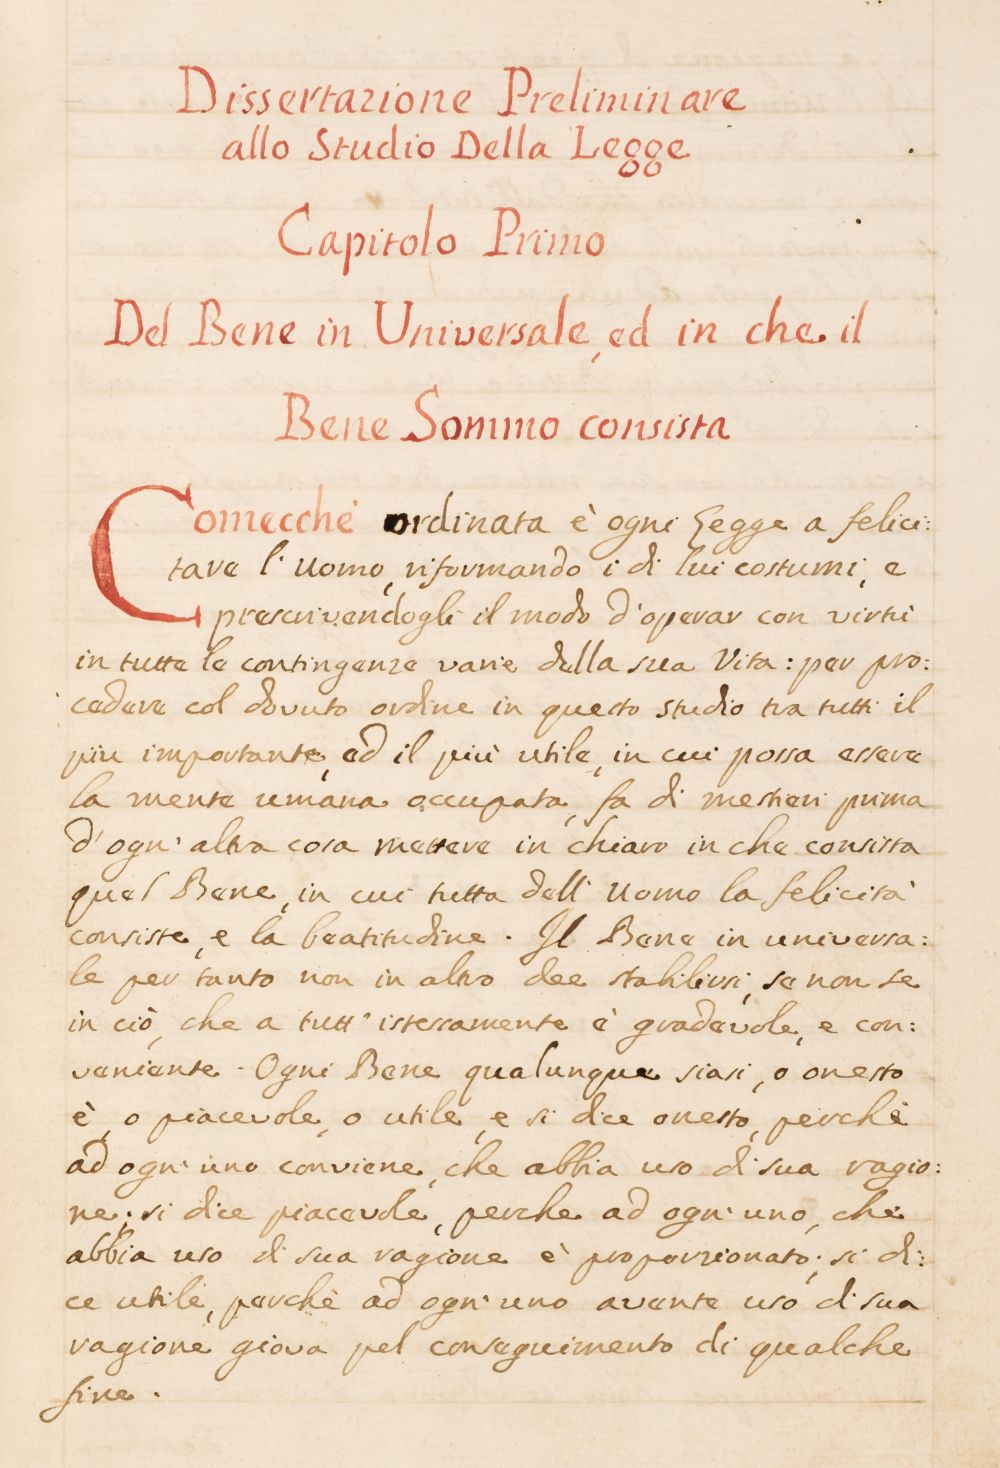 Dissertazione Preliminare
allo Studio Della Legge
Capitolo Primo
Del Bene in Universale, ed in che il
Bene Sommo consista
Comecchè ordinata è ogni Legge a felici:
tare l'Uomo, riformando i di lui costumi, e
prescrivendogli il modo d'operar con virtù
in tutte le contingenze varie della sua Vita: per pro:
cedere col dovuto ordine in questo studio tra tutti il
più importante, ed il più utile, in cui possa essere
la mente umana occupata, fa di mestieri prima
d'ogn'altra cosa mettere in chiaro in che consista
quel Bene, in cui tutta dell'Uomo la felicità
consiste, e la beatitudine. Il Bene in universa:
le per tanto non in altro dee stabilirsi, se non se
in ciò, che a tutt'istessamente è gradevole, e con:
veniente. Ogni Bene qualunque siasi, o onesto
è, o piacevole, o utile, e si dice onesto, perchè
ad ogn'uno conviene, che abbia uso di sua ragio:
ne; si dice piacevole, perche ad ogn'uno, che
abbia uso di sua ragione è proporzionato; si di:
ce utile, perchè ad ogn'uno avente uso di sua
ragione giova pel conseguimento di qualche
fine.